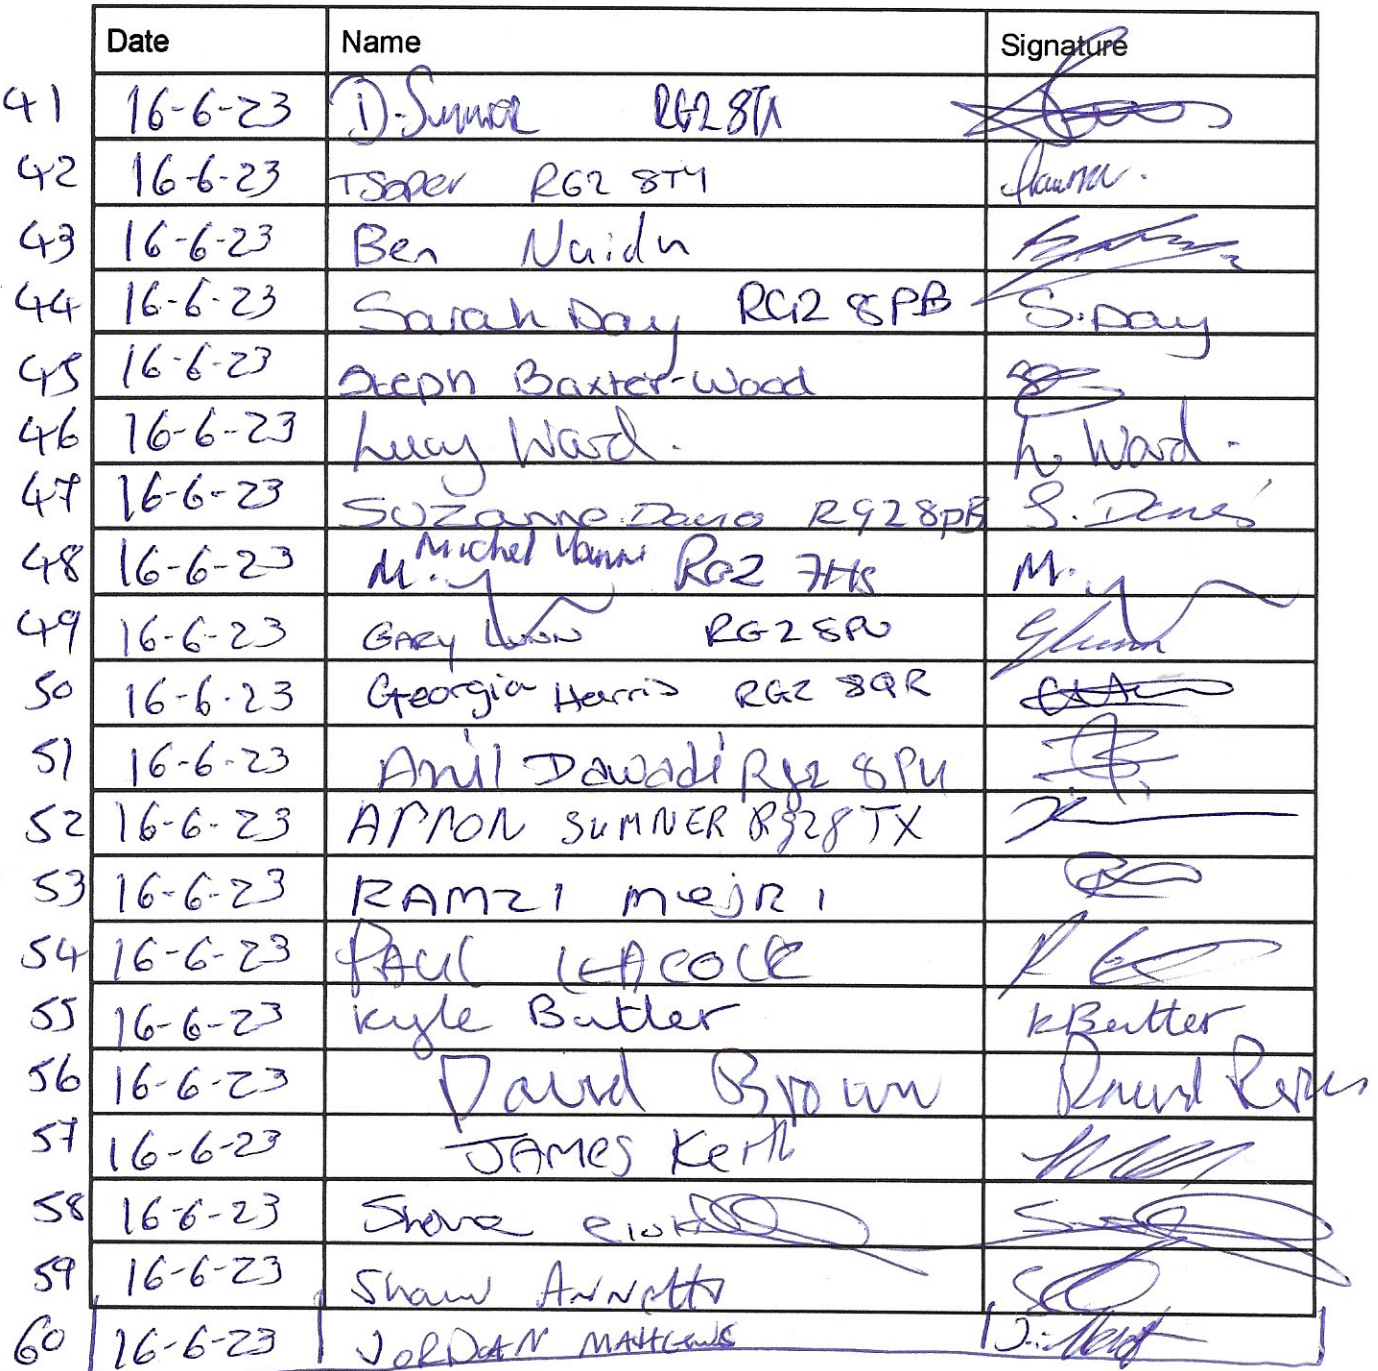 Date Name Signature
41 16-6-23 D. RG2 8TX
42 16-6-23 T Soper RG2 8TY
43 16-6-23 Ben Naidu
44 16-6-23 Sarah Day RG2 8PB S. Day
45 16-6-23 Steph Baxter-Wood
46 16-6-23 Lucy Ward. L. Ward.
47 16-6-23 Suzanne RG2 8PB S.
48 16-6-23 M. Michel RG2 7HS M.
49 16-6-23 GARY LUNN RG2 8PU GLunn
50 16-6-23 Georgia Harris RG2 8QR
51 16-6-23 Anil Dawadi Rg2 8PU
52 16-6-23 SUMNER Rg2 8TX
53 16-6-23 RAMZI mejRi
54 16-6-23 PAUL
55 16-6-23 Kyle Butler KButler
56 16-6-23 David Brown David
57 16-6-23 JAMES Keith
58 16-6-23
59 16-6-23 Shaun
60 16-6-23 JORDAN